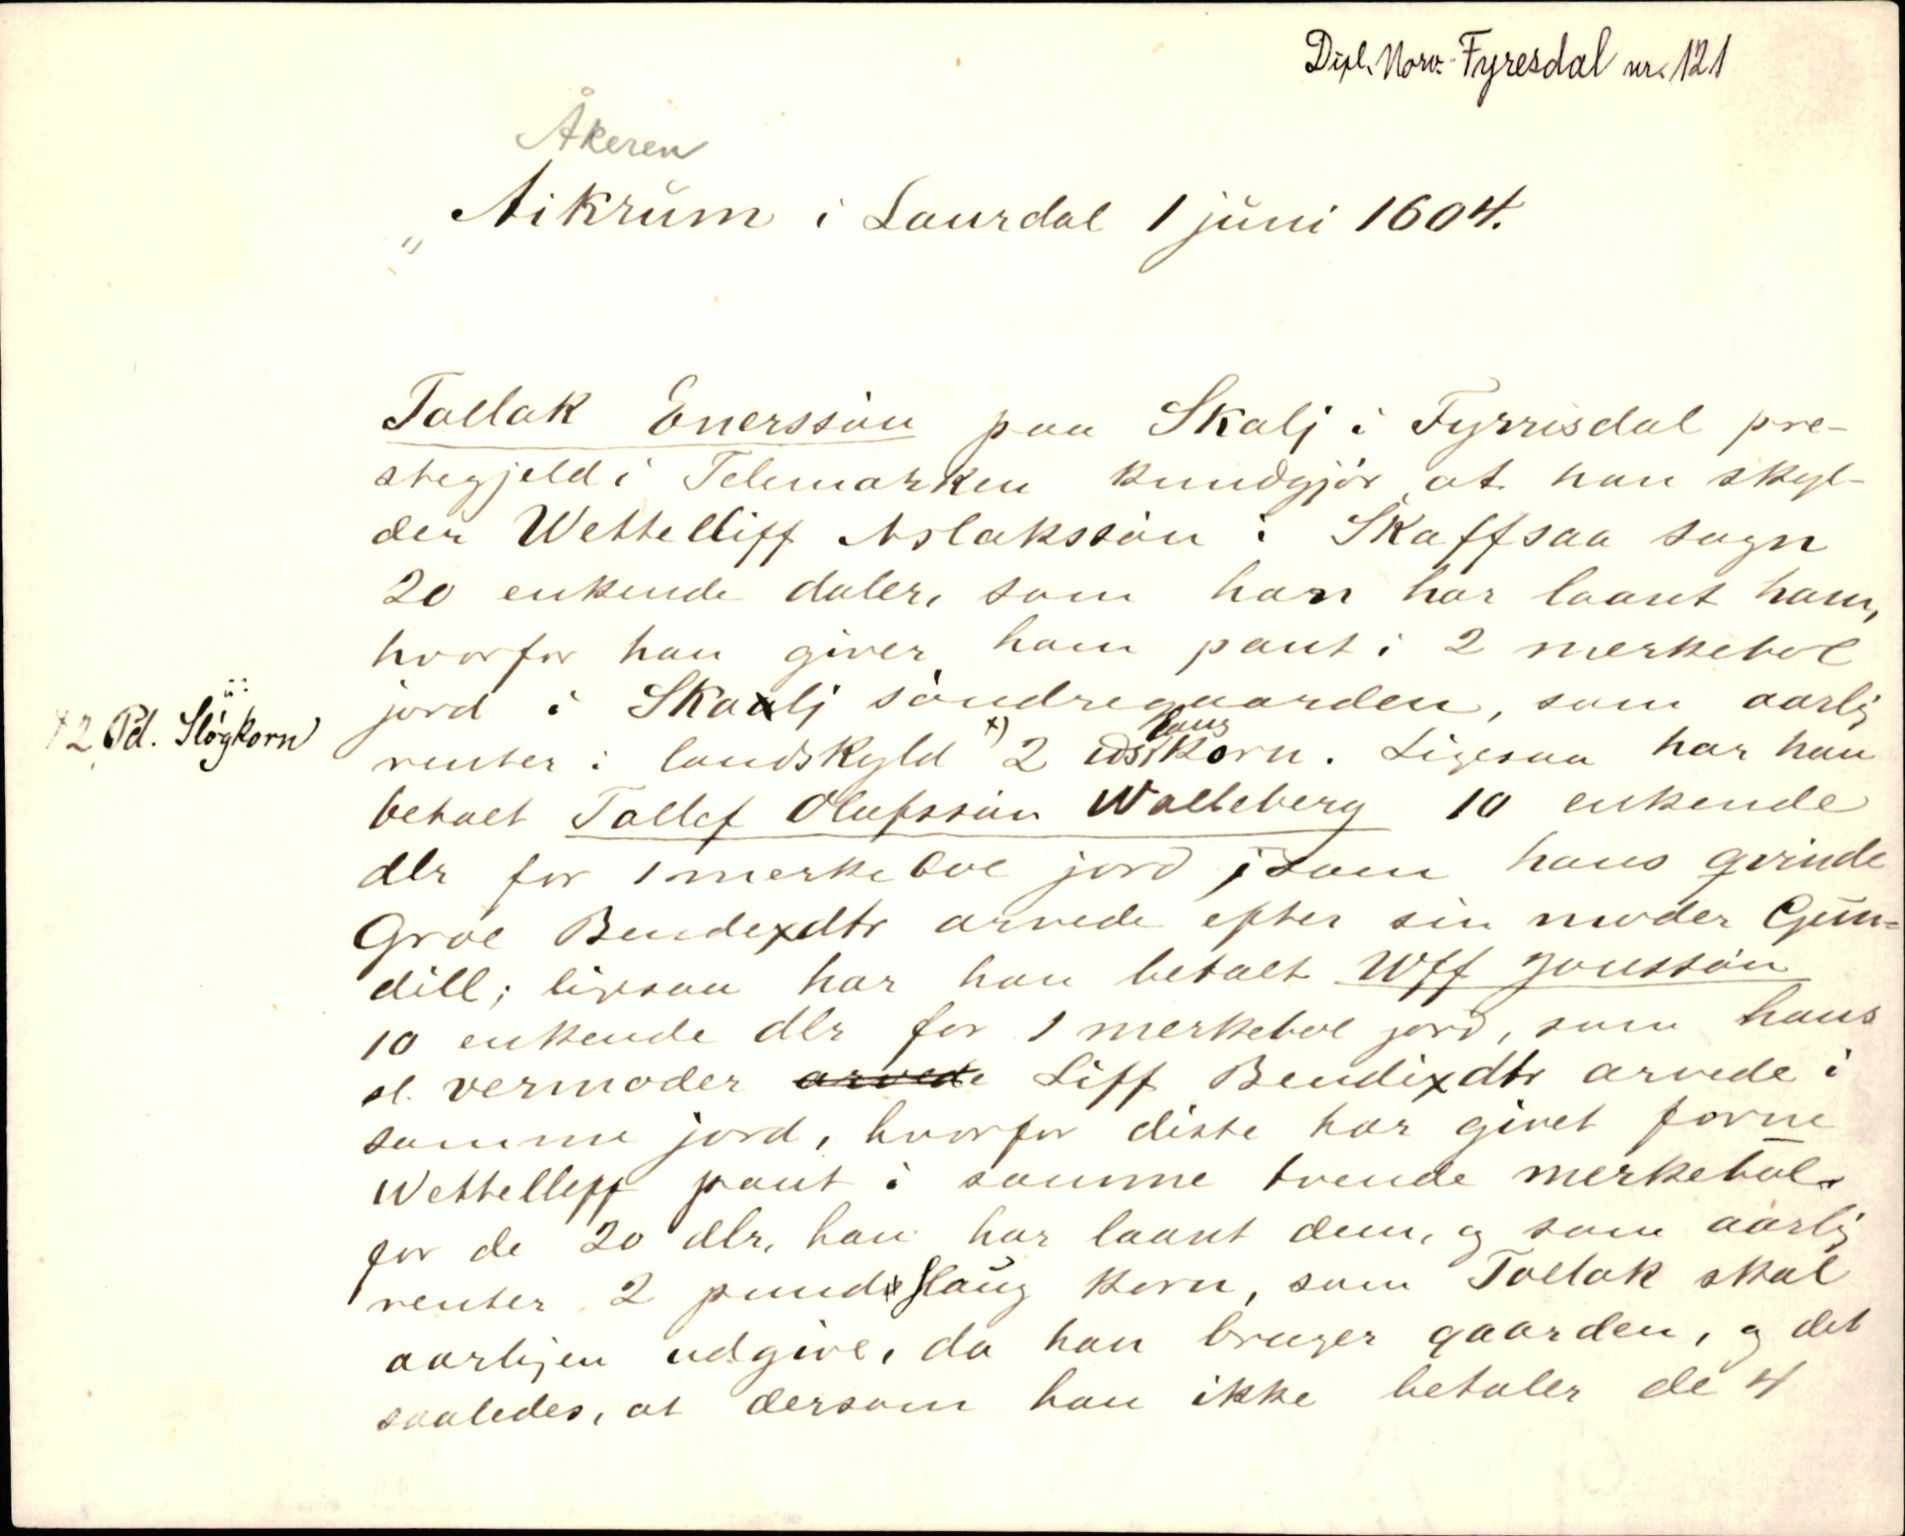 Dipl. Norv. Fyresdal nr. 121
Åkeren
„Aikrŭm i Laurdal 1 jŭni 1604.
Tollak Enerssön paa Skalj i Fyrrisdal pre-
stegjeld i Telemarken kundgjör at han skyl-
der Wettelliff Aslakssön i Skaffsaa sogn
20 enkende daler, som han har laant ham,
hvorfor han giver ham pant i 2 merkebol
jord i Skaalj söndregaarden, som aarlig
renter i landskyld x) 2 korn. Ligesaa har han
x 2 Pd. Slögkorn
betalt Tollef Olufssön Walleberg 10 enkende
dlr for 1 merkebol jord, som hans qvinde
Groe Bendixdtr arvede efter sin moder Gŭn-
dill; ligesaa har han betalt Uff Jonssön
10 enkende dlr for 1 merkebol jord, som hans
sl. vermoder arvede Liff Bendixdtr arvede i
samme jord, hvorfor diste har givet forne
Wettelleff pant i samme tvende merkebol
for de 20 dlr, han har laant dem, og som aarlig
renter 2 pund slaŭg korn, som Tollak skal
aarligen udgive, da han bruger gaarden, og det
saaledes, at dersom han ikke betaler de 4